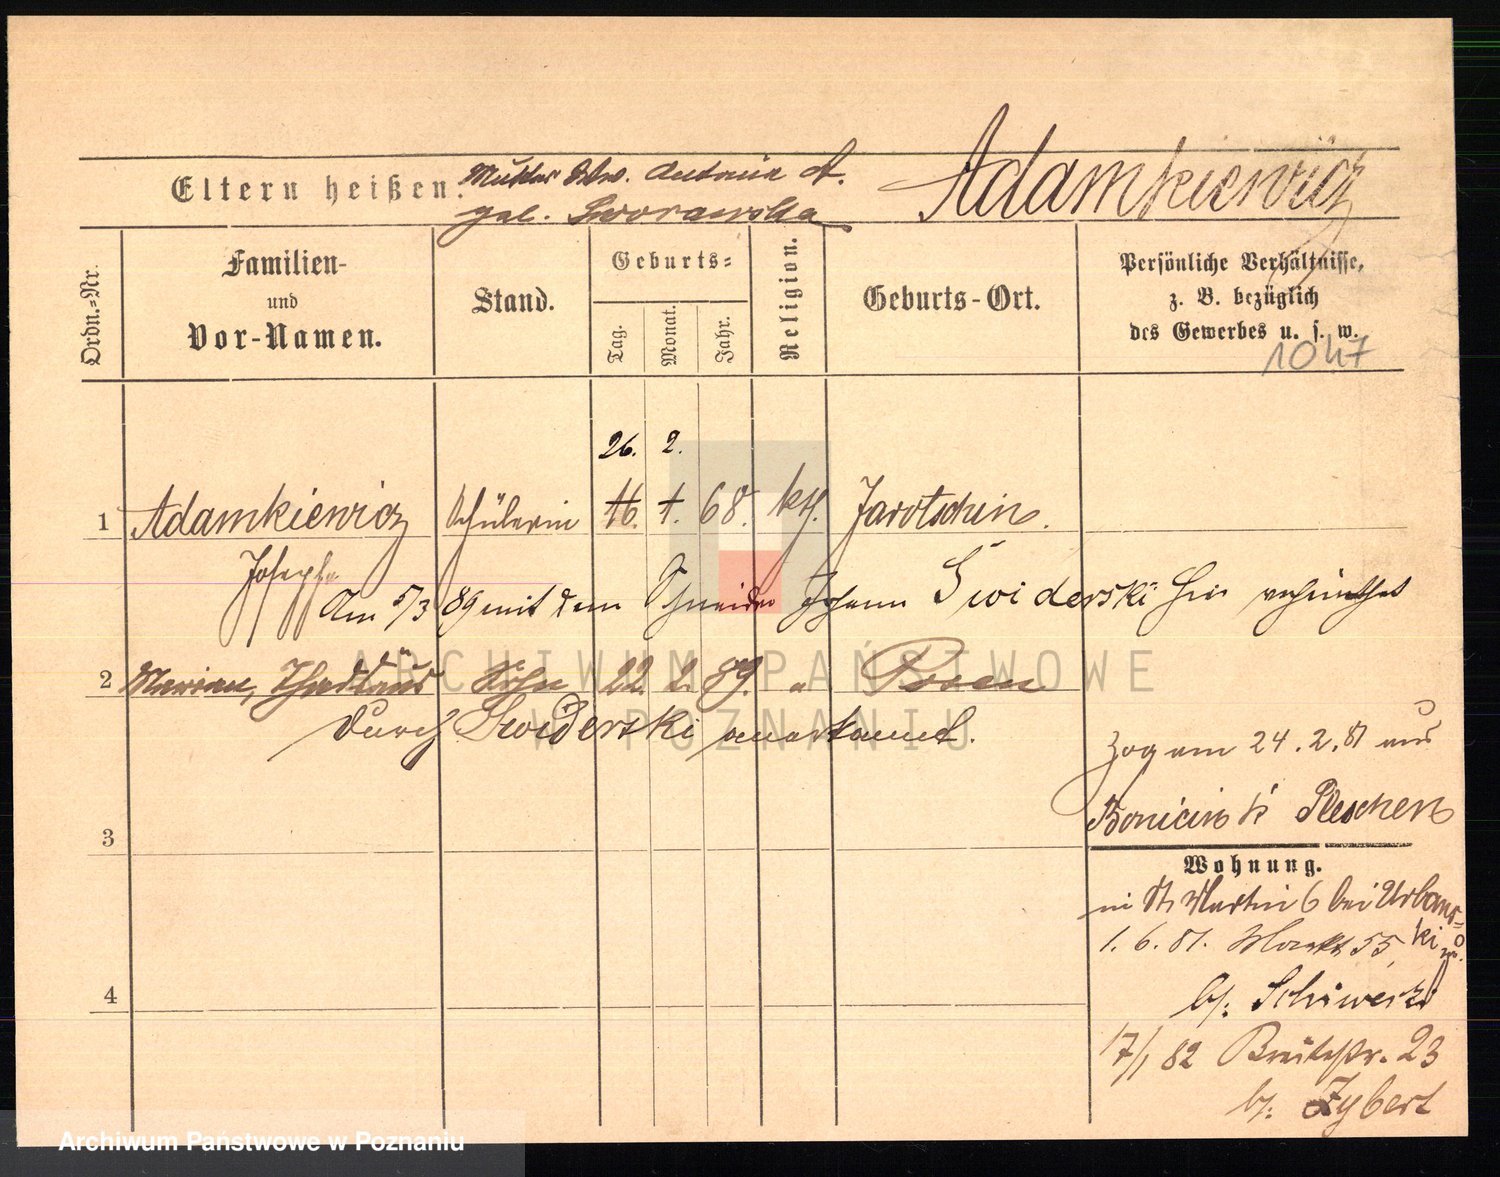 Eltern heißen: Mutter Ww. Antonie A.
geb. Sworowska
Adamkiewicz
Ordn.-Nr.
Familien-
und
Vor-Namen.
Stand.
Geburts-
Tag.
Monat.
Jahr.
Religion.
Geburts-Ort.
Persönliche Verhältnisse,
z. B. bezüglich
des Gewerbes u. s. w.
1047
26. 2.
1 Adamkiewicz Schülerin 16. 1. 68. kth. Jarotschin.
Josepha
Am 5/3 89 mit dem Schneider Johann Swiderski hier verheirathet
2 Marian, Thaddäus Sohn 22. 2. 89. " Posen
durch Swiderski anerkannt.
Zog am 24.2.81 aus
Bonicin k Pleschen
3
Wohnung.
in St. Martin 6 bei Urbanowski
1.6.81. Markt 55
b/.
4
17/1 82 Breitestr. 23
b/. Zybert
ARCHIWUM PAŃSTWOWE
W POZNANIU
Archiwum Panstwowe w Poznaniu